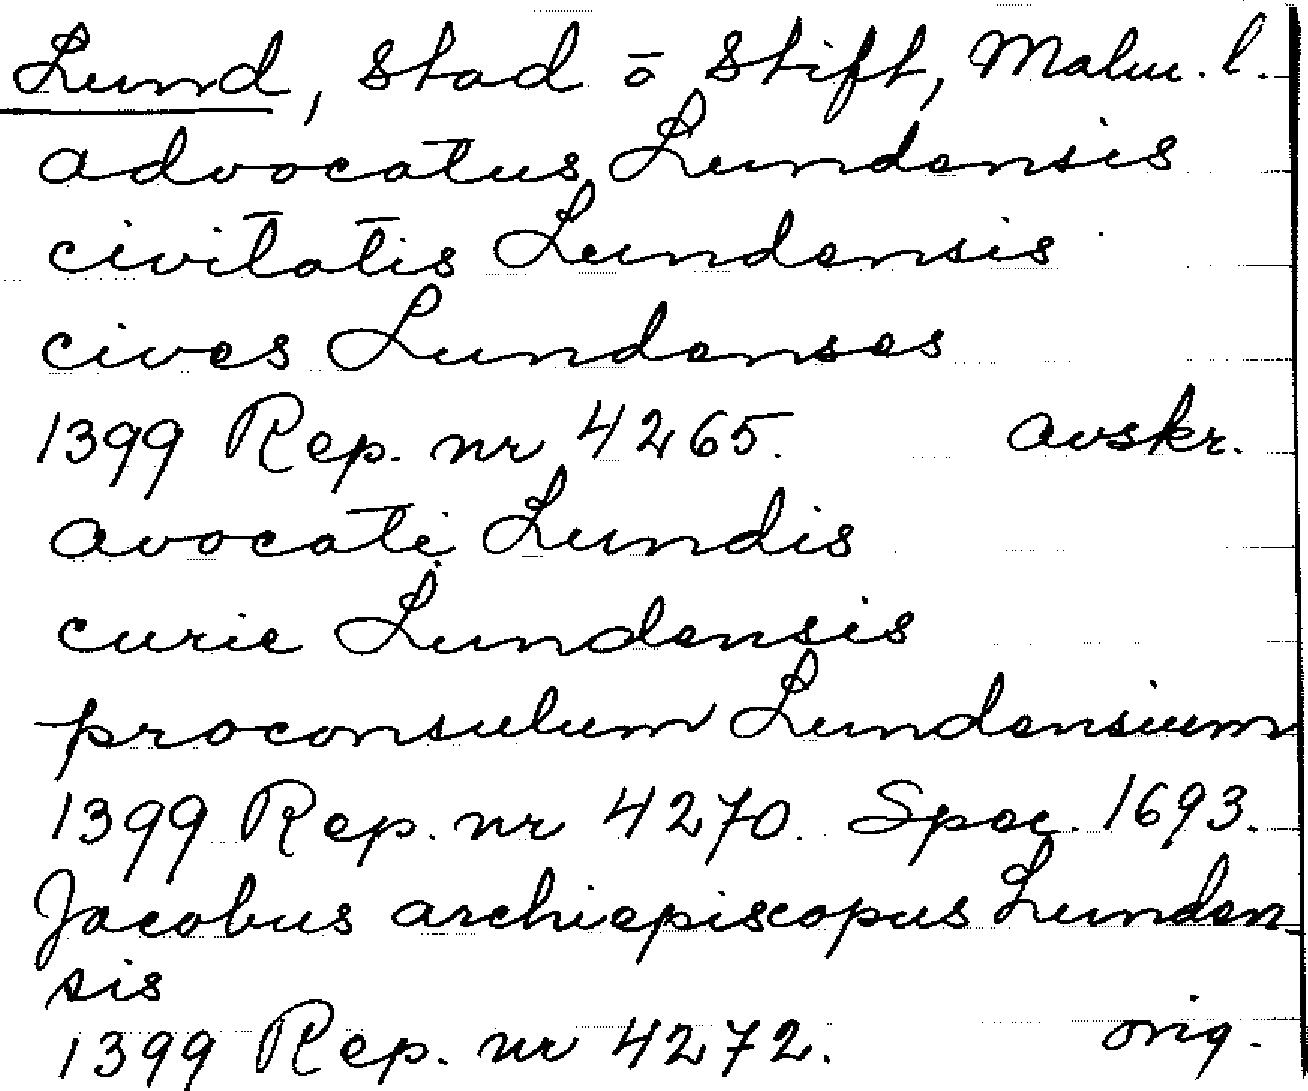 Lund, Stad o Stift, Malm. l.
advocatus Lundensis
civitatis Lundensis
cives Lundenses
1399 Rep. nr 4265. avskr.
avocati Lundis
curie Lundensis
proconsulum Lundensium
1399 Rep. nr 4270. Spec. 1693.
Jacobus archiepiscopus Lunden-
sis
1399 Rep. nr 4272. orig.